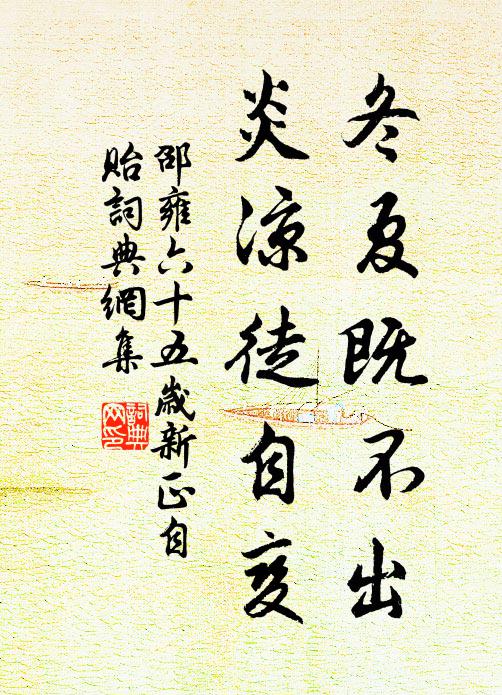 冬夏既不出
炎凉徒自变
邵雍六十五歲新正自
贻詞典網集
詞典
网印